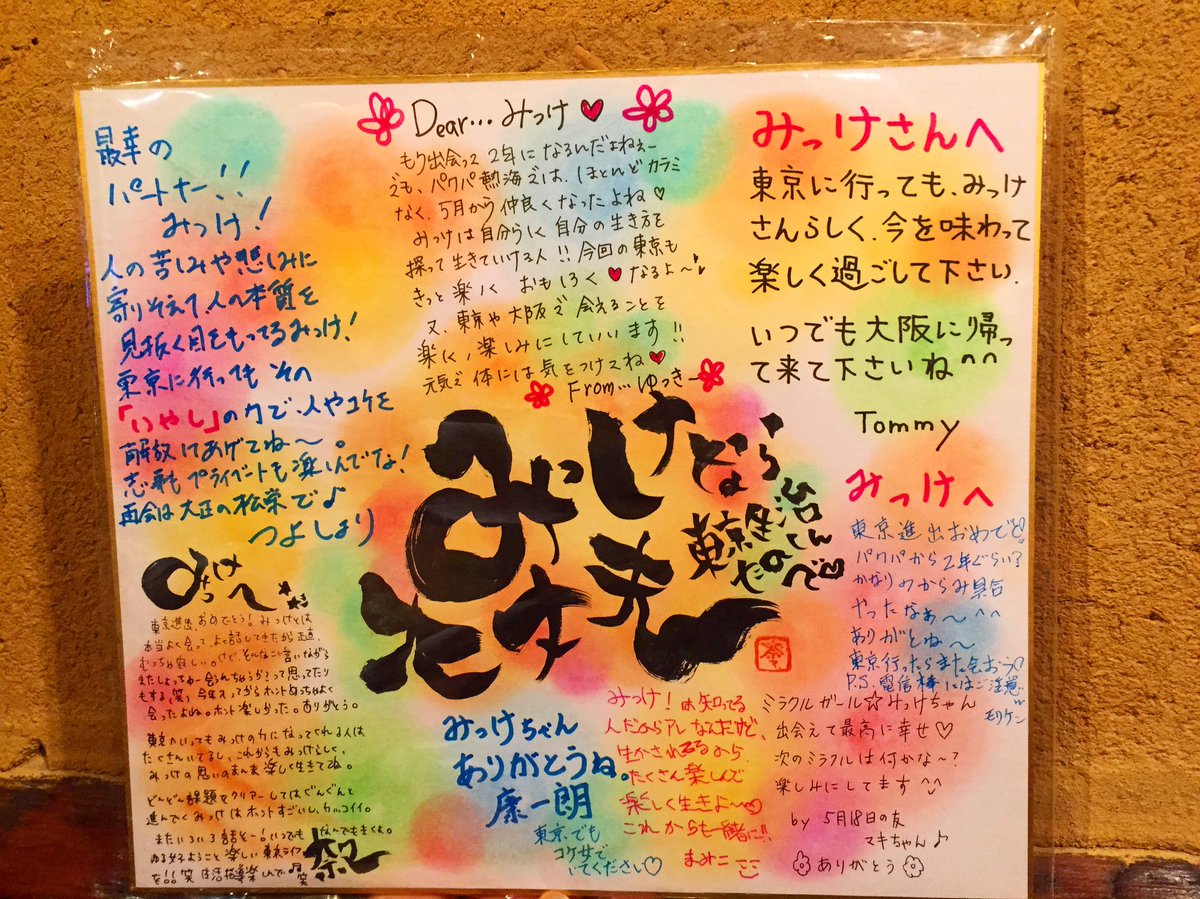 最幸の
パートナー!!
みっけ!
人の苦しみや悲しみに
寄りそえて、人の本質を
見抜く目をもってるみっけ!
東京に行ってもその
「いやし」の力で、人やコケを
解放してあげてね〜。
志事もプライベートも楽しんでな!
再会は大正の松栄で♪
つよしより
Dear… みっけ♥
もう出会って2年になるんだよねぇー
でも、パワパ熱海では、ほとんどカラミ
なく、5月から仲良くなったよね♡
みっけは自分らしく自分の生き方を
探って生きていける人!!今回の東京も
きっと楽しく おもしろく♥なるよ〜♪
又、東京や大阪で会えることを
楽しく、楽しみにしていいます!!
元気で体には気をつけてね♥
From…ゆっきー
みっけさんへ
東京に行っても、みっけ
さんらしく、今を味わって
楽しく過ごして下さい.
いつでも大阪に帰っ
て来て下さいね^^
Tommy
みっけなら
大丈夫
東京生活
たのしんで♡
みっけへ
東京進出おめでとう
パワパから2年ぐらい?
かなりのからみ具合
やったなぁ〜^^
ありがとね〜
東京行ったらまた会おう♡
P.S. 電信棒にはご注意…
モリケン
みっけへ
東京進出おめでとう!みっけとは
本当よく会って よく話してきたから正直、
むっちゃ寂しい。けど、そんなこと言いながら
またしょっちゅー会うんちゃうか?って思ってたり
もする(笑)今年入ってからホントめっちゃよく
会ったよね。ホント楽しかった。ありがとう。
東京へいってもみっけの力になってくれる人は
たくさんいてるし、これからもみっけらしく、
みっけの思いのまんま楽しく生きてね。
ど〜んど〜ん課題をクリアーしてはぐんぐんと
進んでくみっけはホントすごいし、カッコイイ。
またいろいろ話そー!いつでもなんでもきくよ。
楽しい東京ライフ
を!!笑
みっけちゃん
ありがとうね。
康一朗
東京でも
コケ女で
いてください♡
みっけ!は知ってる
人だからアレなんだけど、
生かされてるから
たくさん楽しんで
楽しく生きよ〜♡
これからも一緒に!!
まみこ
ミラクルガール☆みっけちゃん
出会えて最高に幸せ♡
次のミラクルは何かな〜?
楽しみにしてます^^
by 5月18日の友
マキちゃん♪
ありがとう